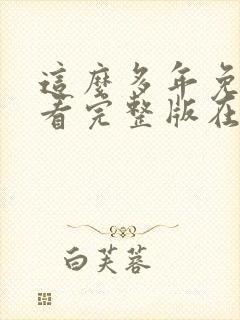 這麼多年免
看完整版在
白芙蓉